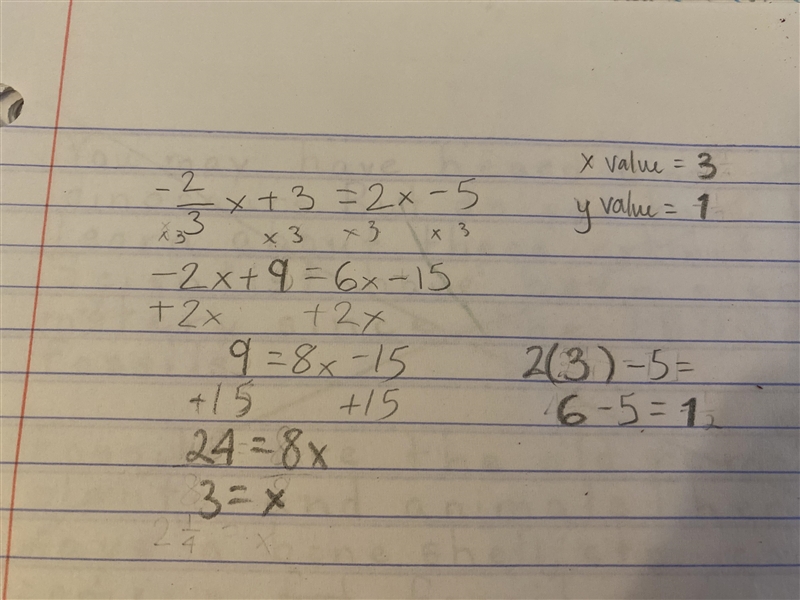 -2/3 x + 3 = 2x - 5
x3 x3 x3 x3
-2x + 9 = 6x - 15
+2x +2x
9 = 8x - 15
+15 +15
24 = 8x
3 = x
2 1/4 x
x value = 3
y value = 1
2(3) - 5 =
6 - 5 = 1